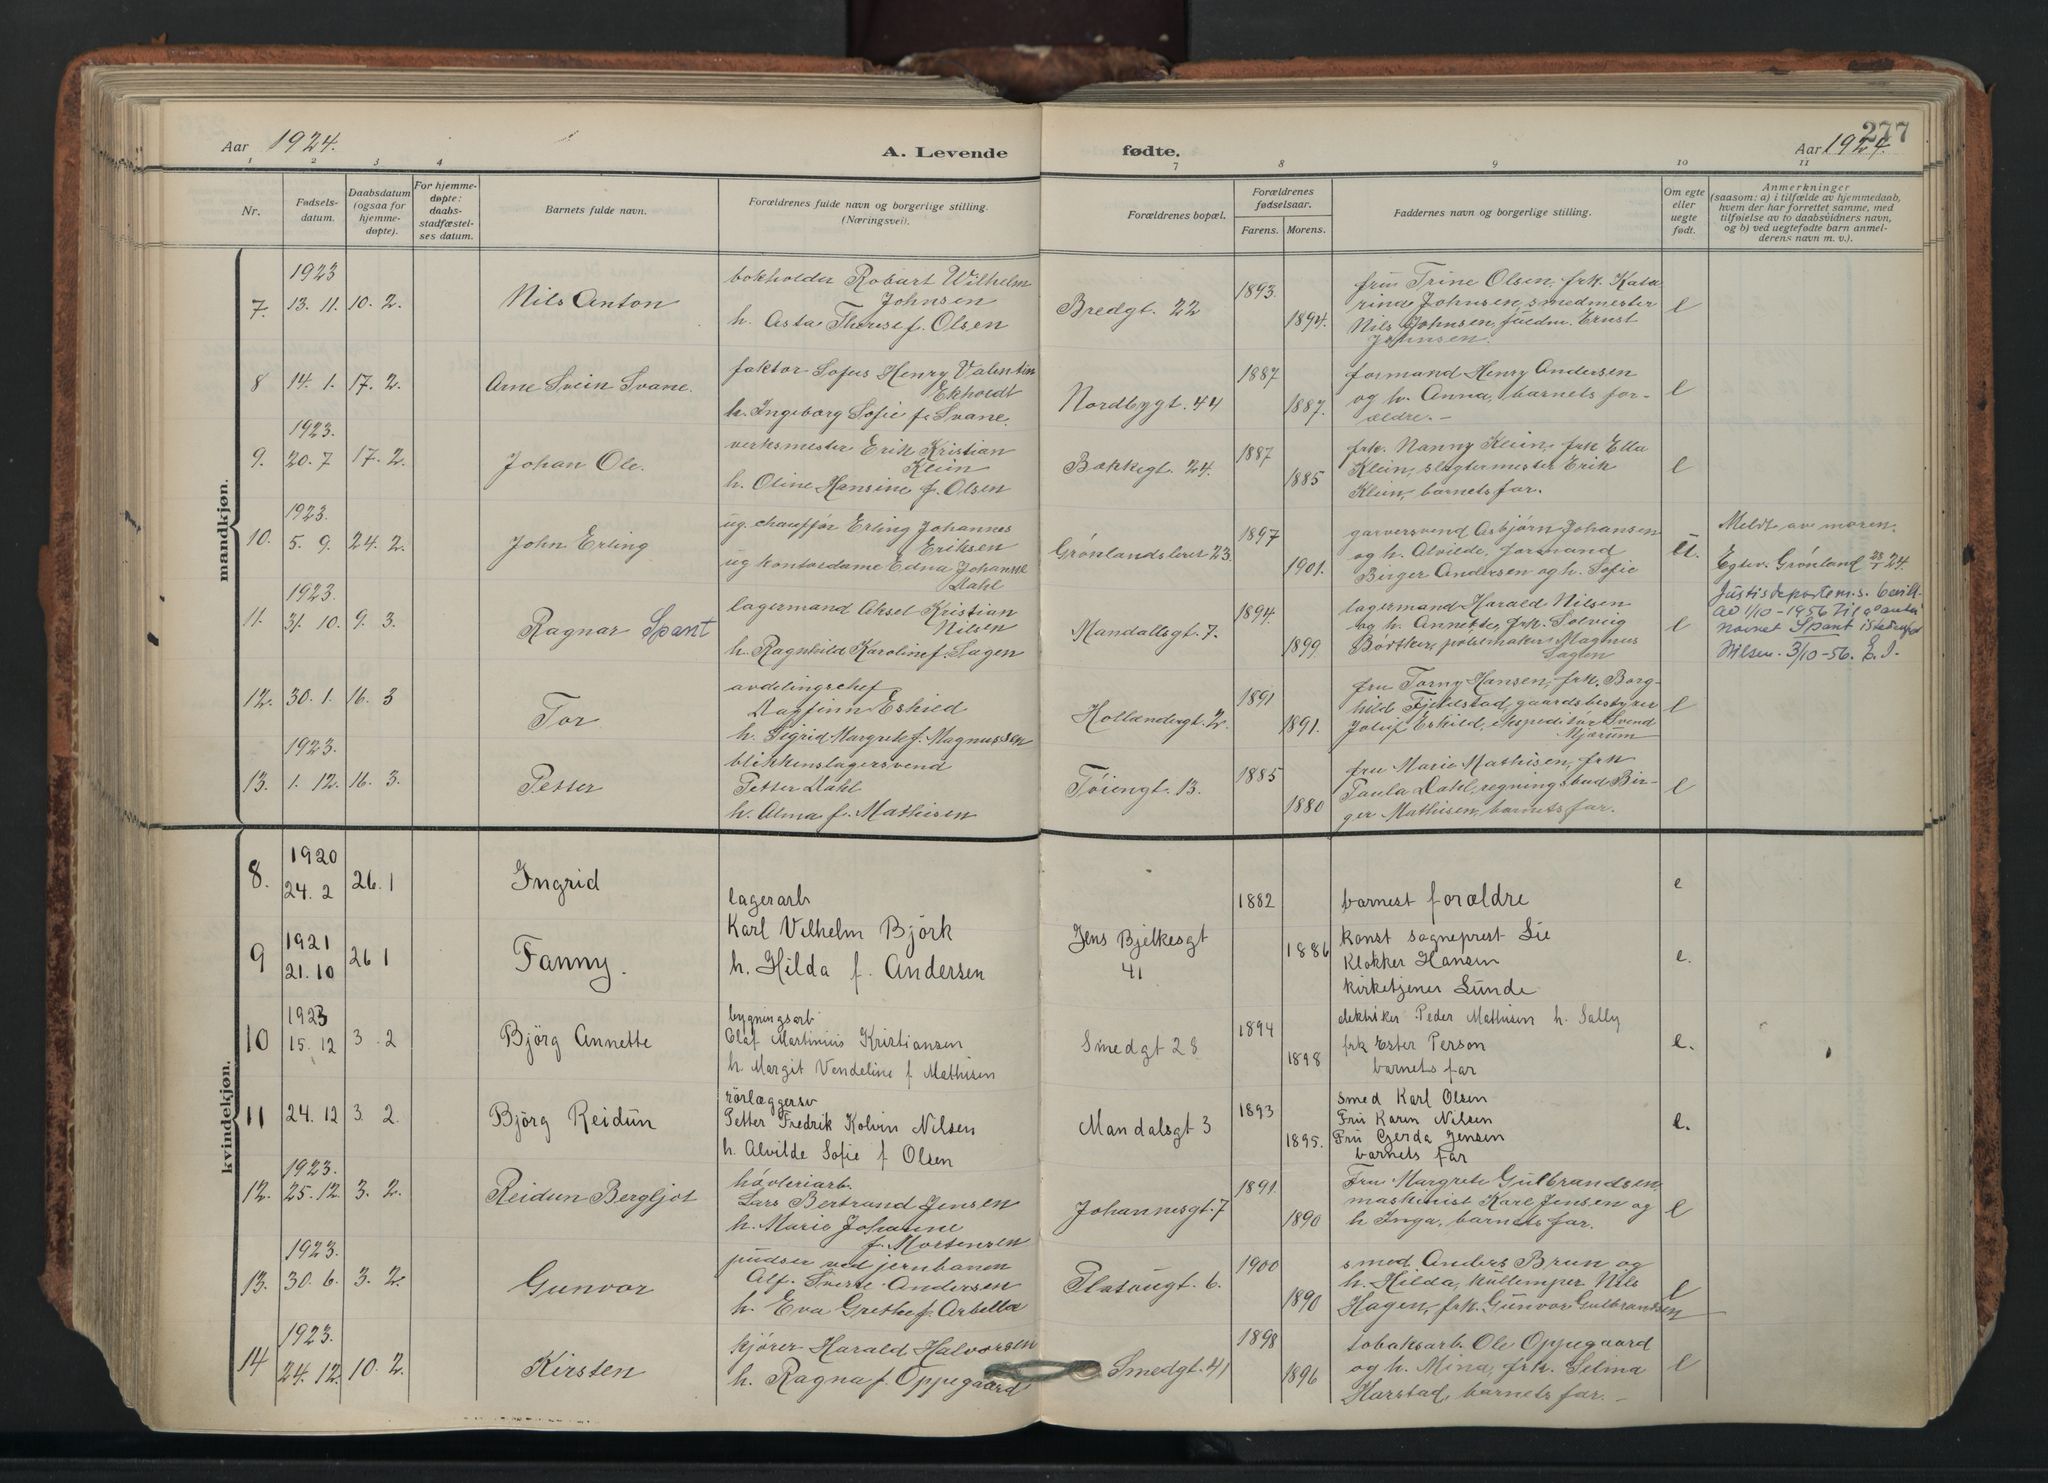 Aar 1924.
A. Levende fødte.
277
Aar 1924.
1 2 3 4 7 8 9 10 11
Nr.
Fødsels-
datum.
Daabsdatum
(ogsaa for
hjemme-
døpte).
For hjemme-
døpte:
daabs-
stadfæstel-
ses datum.
Barnets fulde navn.
Forældrenes fulde navn og borgerlige stilling.
(Næringsvei).
Forældrenes bopæl.
Forældrenes
fødselsaar.
Farens. Morens.
Faddernes navn og borgerlige stilling.
Om egte
eller
uegte
født.
Anmerkninger
(saasom: a) i tilfælde av hjemmedaab,
hvem der har forrettet samme, med
tilføielse av to daabsvidners navn,
og b) ved uegtefødte barn anmel-
derens navn m. v.).
mandkjøn.
7. 1923 13. 11. 10. 2.
Nils Anton
bokholder Robart Wilhelm
Johnsen
h. Asta Therese f. Olsen
Bredgt. 22
1893. 1894.
fru Trine Olsen, frk. Kata
rina Johnsen, smedmester
Nils Johnsen, fuldm. Ernst
Johnsen.
e
8 14. 1. 17. 2.
Arne Svein Svane.
faktor Sofus Henry Valentin
Ekholdt
h. Ingeborg Sofie f. Svane.
Nordbygt. 44
1887 1887.
formand Henry Andersen
og h. Anna, barnets for-
ældre. –
e
9. 1923. 20. 7 17. 2.
Johan Ole.
verksmester Erik Kristian
Klein
h. Oline Hansine f. Olsen
Bakkegt. 24.
1887 1885
frk. Nanny Klein, frk Ella
Klein, slagtermester Erik
Klein, barnets far.
e
10. 1923. 5. 9. 24. 2.
John Erling
ug. chauffør Erling Johannes
Eriksen
ug kontordame Edna Johanne
Dahl
Grønlandsleret 23.
1897 1901.
garversvend Asbjørn Johansen
og h. Alvilde, formand
Birger Andersen og h. Sofie
u.
Meldt av moren.
Egtev. Grønland 28/1 24.
11. 1923. 31. 10. 9. 3.
Ragnar Spant
lagermand Aksel Kristian
Nilsen
h. Ragnhild Karoline f. Sagen
Mandallsgt. 7.
1894. 1899
lagermand Harald Nilsen
og h. Annette, frk. Solveig
Bødtker, pølsemaker Magnus
Sagen
e
Justisdepartem.s. bevilt.
av 1/10-1956 til at anta
navnet Spant istedenfor
Nilsen. 3/10-56.
12. 30. 1. 16. 3
Tor
avdelingschef
Dagfinn Eskild
h. Sigrid Margrete f. Magnussen
Hollendergt. 2.
1891 1891.
fru Torny Hansen, frk. Borg-
hild Fjeldstad, gaardsbestyrer
Eskild, ekspeditør Svend
Mjærum
e
13. 1923. 1. 12. 16. 3.
Petter
blikkenslagersvend
Petter Dahl
h. Alma f. Mathisen
Tøiengt. 13.
1885 1880
fru Marie Mathisen, frk
Paula Dahl, regningsbud Bir-
ger Mathisen, barnets far.
e
kvindekjøn.
8. 1920 24. 2 26. 1
Ingrid
9 1921 21. 10 26 1
Fanny.
lagerarb
Karl Vilhelm Björk
h. Hilda f. Andersen
Jens Bjelkesgt
41
1882 1886
barnest forældre
konst sogneprest Lie
Klokker Hansen
kirketjener Lunde
e
e.
10 1923 15. 12 3. 2
Björg Annette
bygningsarb
Olaf Martinius Kristiansen
h. Margit Vendeline f Mathisen
Smedgt 28
1894 1898
elektriker Peder Mathisen h. Sally
frk Ester Person
barnets far
e.
11 24. 12 3. 2
Björg Reidun
rörlæggersv
Petter Fredrik Kolvin Nilsen
h. Alvilde Sofie f Olsen
Mandalsgt 3
1893 1895.
smed Karl Olsen
Fru Karen Nilsen
Fru Gerda Jensen
barnets far
e.
12. 1923. 25. 12. 3. 2.
Reidun Bergljot
høvleriarb.
Lars Bertrand Jensen
h. Marie Johanne
f. Mortensen
Johannesgt. 7
1891. 1890
Fru Margrete Gulbrandsen,
maskinist Karl Jensen og
h Inga, barnets far.
e
13. 1923. 30. 6. 3. 2.
Gunvor
pudser ved jernbanen
Alf. Sverre Andersen
h. Eva Grethe f. Arbella
Platougt. 6.
1900 1890
smed Anders Brun og
h. Hilda, kullemper Nils
Hagen, frk. Gunvor Gulbrandsen
e
14 1923. 24. 12. 10. 2.
Kirsten
kjører Harald Halvorsen
h. Ragna f. Oppegaard
Smedgt. 41
1898 1896
tobaksarb. Ole Oppegaard
og h. Mina, frk. Selma
Harstad, barnets far. –
e